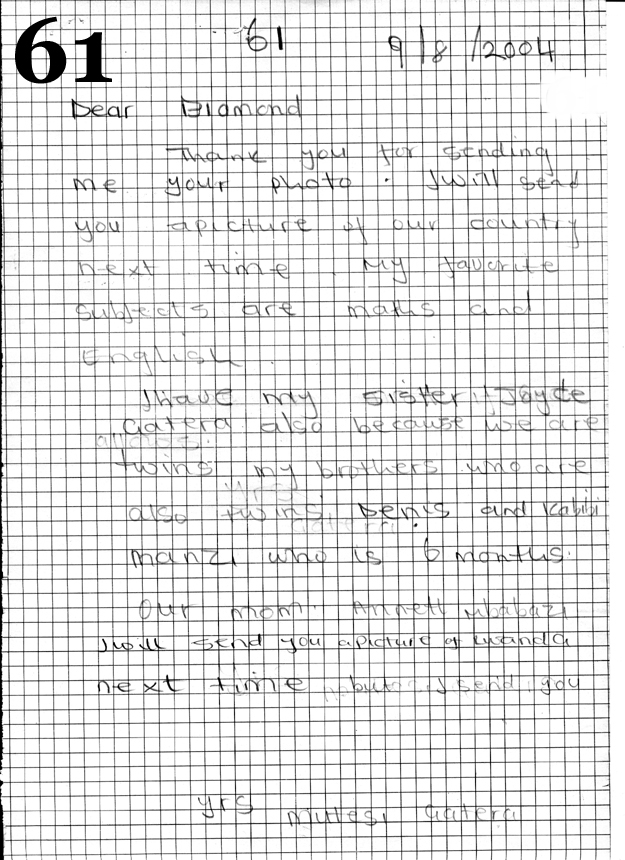 61
61 9/8/2004
Dear Diamond
Thank you for sending
me your photo. I will send
you apicture of our country
next time. My favorite
subjects are maths and
English.
I have my sister Joyce
Gatera also because we are
twins my brothers who are
also twins, Denis and Kabibi
manzi who is 6 months.
Our mom. Annett Mbabazi
I will send you apicture of
next time but I send you
yrs Mutesi Gatera